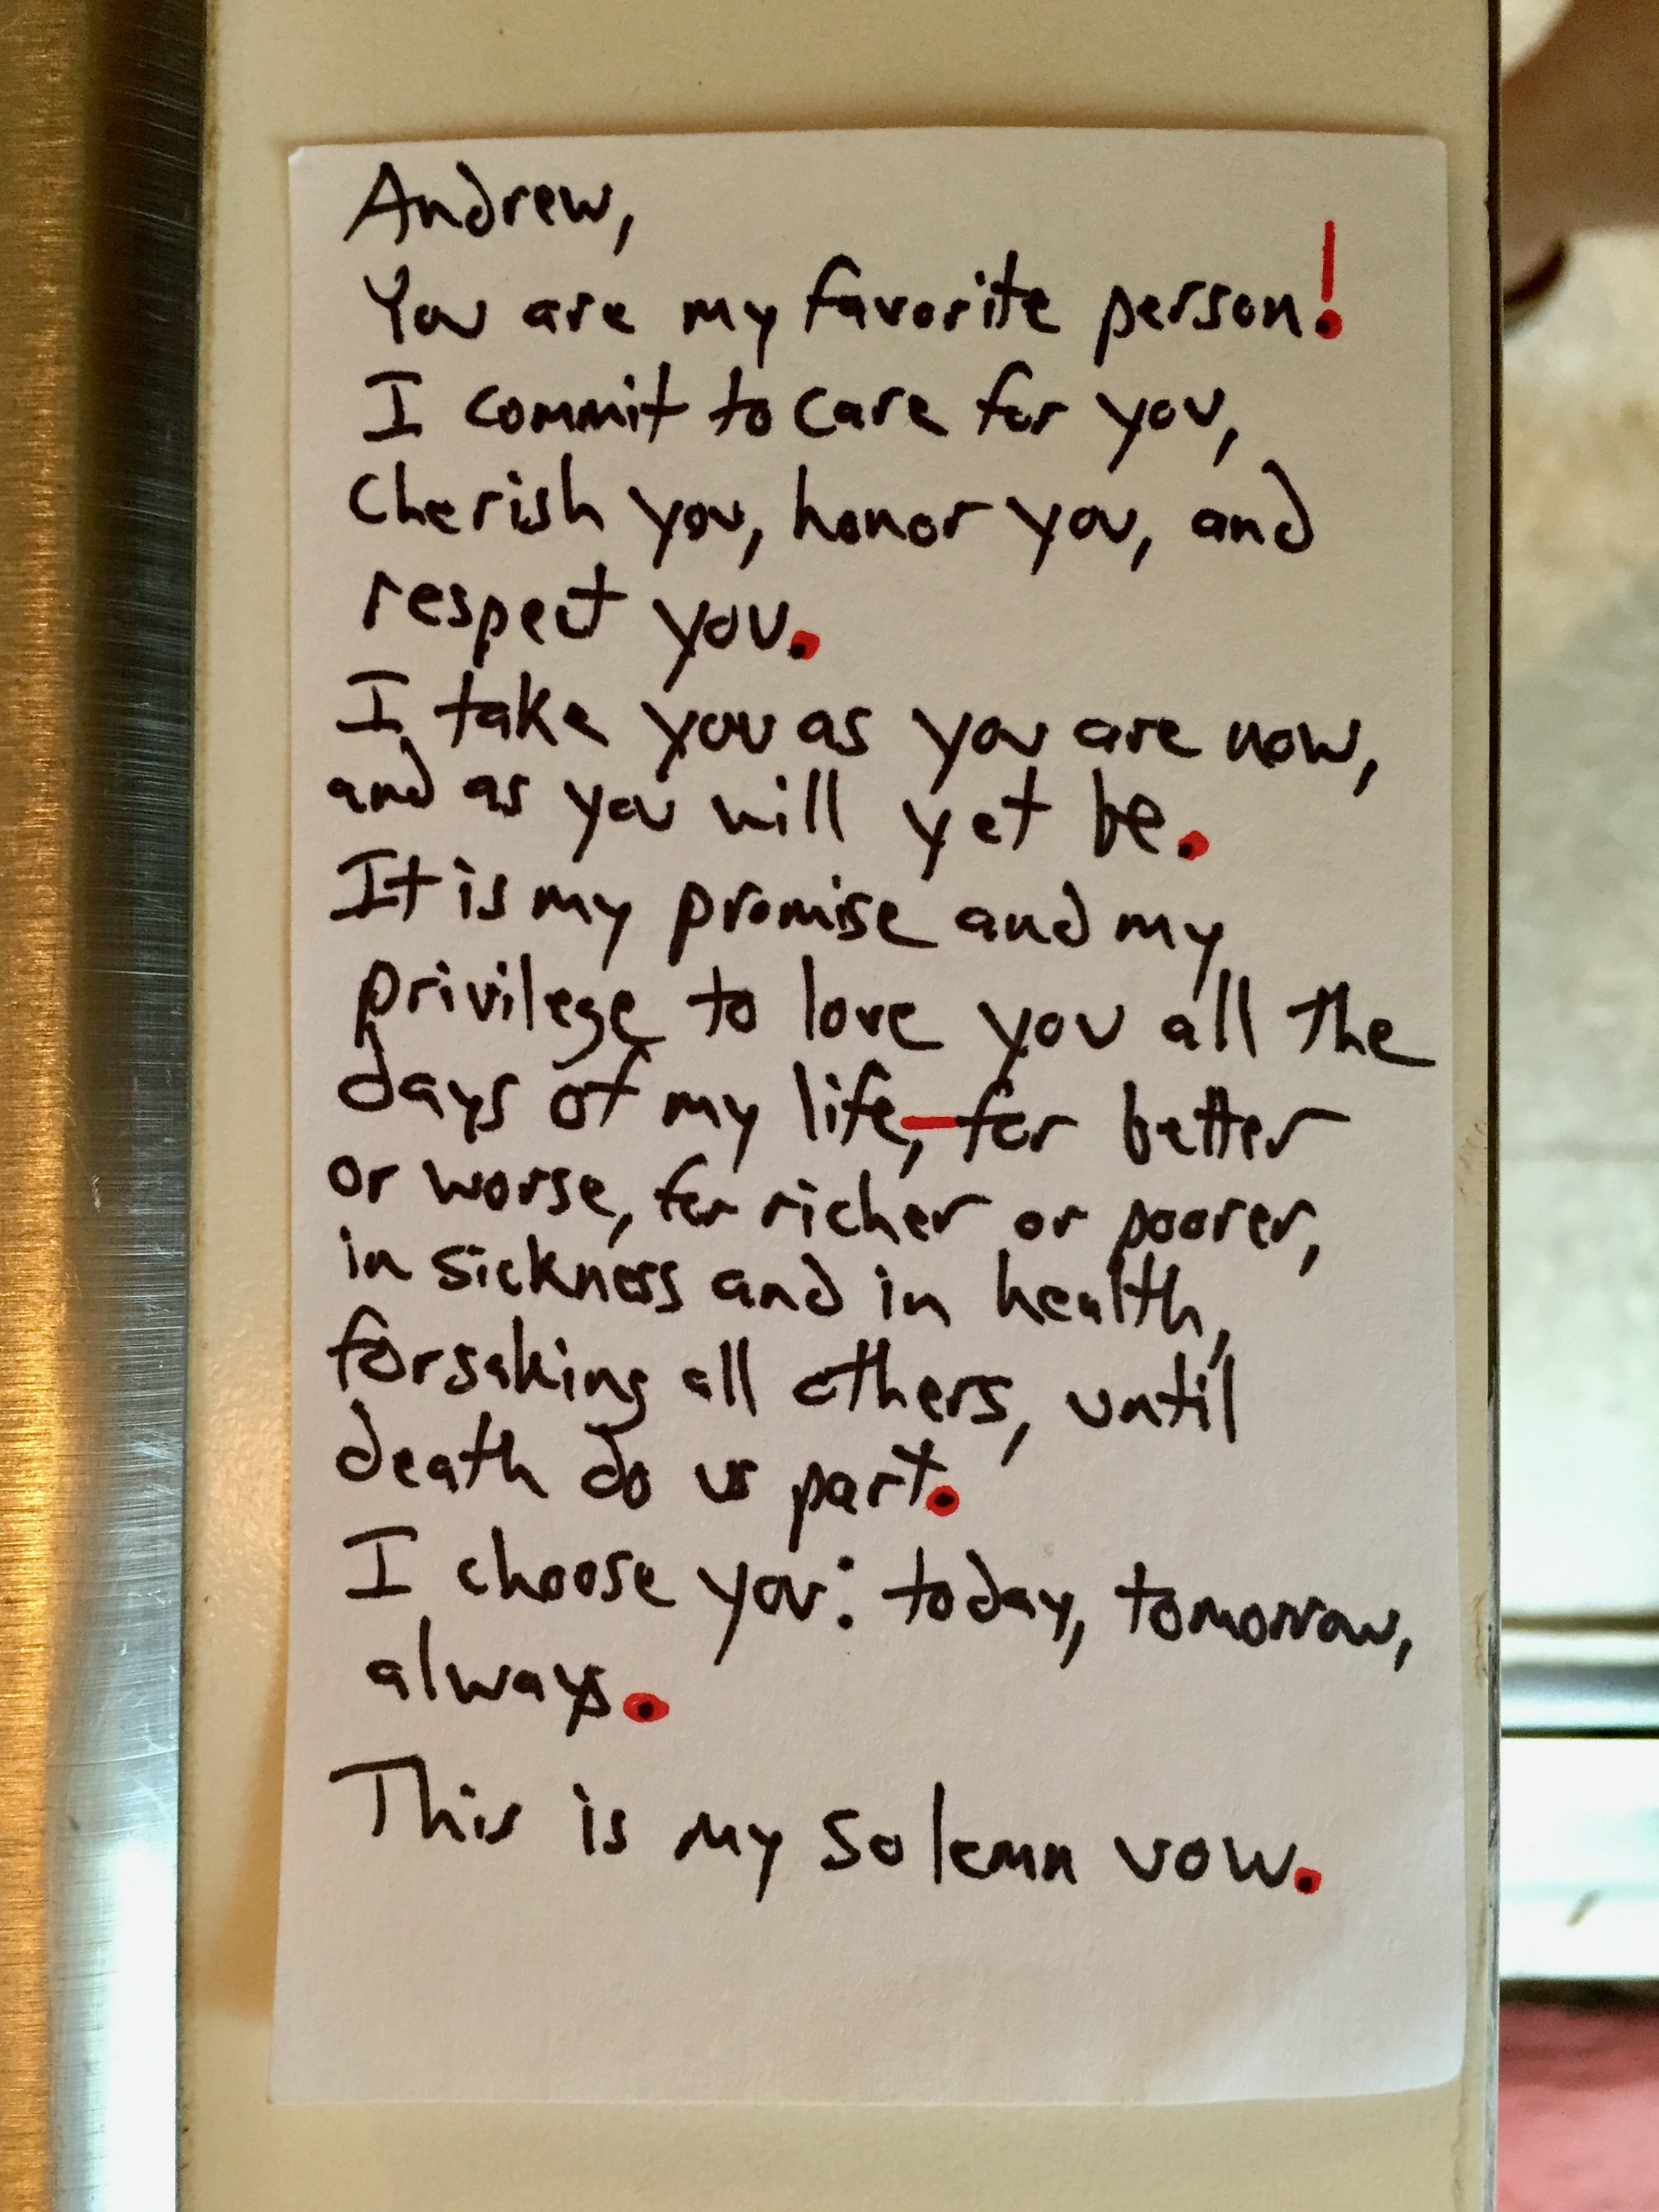 Andrew,
You are my favorite person!
I commit to care for you,
cherish you, honor you, and
respect you.
I take you as you are now,
and as you will yet be.
It is my promise and my
privilege to love you all the
days of my life,—for better
or worse, for richer or poorer,
in sickness and in health,
forsaking all others, until
death do us part.
I choose you: today, tomorrow,
always.
This is my solemn vow.